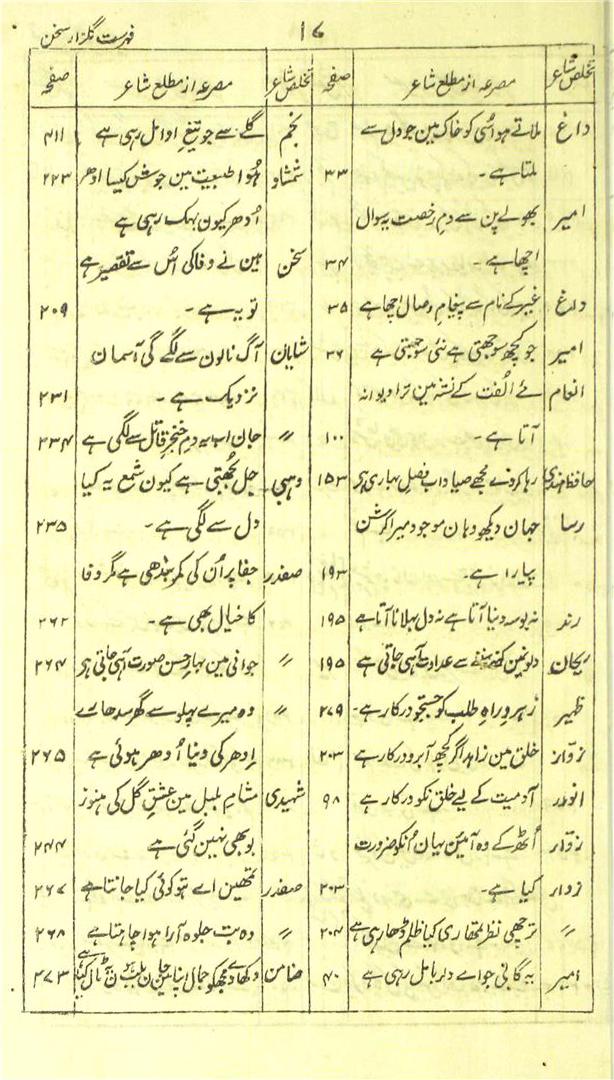 فہرست گلزار سخن
۱۷
تخلص شاعر | مصرعہ از مطلع شاعر | صفحہ
داغ | ملاتے ہو اُسی کو خاک مین جو دل سے
ملتا ہے۔ | ۳۳
امیر | بھولے پن سے دم رخصت یہ سوال
اچھا ہے۔ | ۳۴
داغ | غیر کے نام سے پیغام وصال اچھا ہے | ۳۵
امیر | جو کچھ سوجھتی ہے نئی سوجھتی ہے | ۳۶
انعام | نئے اُلفت کے نشہ مین ترا دیوانہ
آتا ہے۔ | ۱۰۰
حافظ ہندی | رہا کر دے مجھے صیاد اب فصل بہاری ہی | ۱۵۳
رسا | جہان دیکھو وہان موجود میرا کرشن
پیارا ہے۔ | ۱۹۳
رند | نہ بوسہ دنیا آتا ہے نہ دل بہلانا آتا ہے | ۱۹۵
ریحان | دلونمین کہنے سننے سے عداوت آہی جاتی ہے | ۱۹۵
ظہیر | رہرو راہ طلب کو جستجو درکار ہے۔ | ۲۷۹
زوّار | خلق مین زاہد اگر کچھ آبرو درکار ہے | ۲۰۳
انور | آدمیت کے لیے خلق نکو درکار ہے | ۹۸
زوّار | اُٹھ کے وہ آئین بیان اُنکو ضرورت
زوار | کیا ہے۔ | ۲۰۳
〃 | ترچھی نظر تمھاری کیا ظلم ڈھا رہی ہے | ۲۰۴
امیر | یہ گاتی جو اے دلربا مل رہی ہے | ۴۰
تخلص شاعر | مصرعہ از مطلع شاعر | صفحہ
نجم | گلے سے جو تیغ ادا مل رہی ہے | ۴۱۱
شمشاد | ہُوا طبیعت مین جوش کیسا ادھر | ۲۲۳
اُدھر کیون بہک رہی ہے
سخن | مین نے وفا کی اُس سے تقصیر ہے
تو یہ ہے۔ | ۲۰۹
شایان | آگ نالون سے لگے گی آسمان
نزدیک ہے۔ | ۲۳۱
〃 | جان اب یہ دم خنجر قاتل سے لگی ہے | ۲۳۴
وہبی | جل بُجھتی ہے کیون شمع یہ کیا
دل سے لگی ہے۔ | ۲۳۵
صفدر | جفا پر اُن کی کمر بندھی ہے مگر وفا
کا خیال بھی ہے۔ | ۲۶۲
〃 | جوانی مین بہار حسن صورت آہی جاتی ہی | ۲۶۴
〃 | وہ میرے پہلو سے گھر سدھارے
اِدھر کی دنیا اُدھر ہوئی ہے | ۲۶۵
شہیدی | مشام بلبل مین عشق گل کی ہنوز
بو بھی نہین گئی ہے | ۲۴۴
صفدر | تمھین اے بتو کوئی کیا جانتا ہے | ۲۶۷
〃 | وہ بت جلوہ آرا ہوا چاہتا ہے | ۲۶۸
ضامن | دکھا دے مجھکو جمال اپنا | ۲۷۳